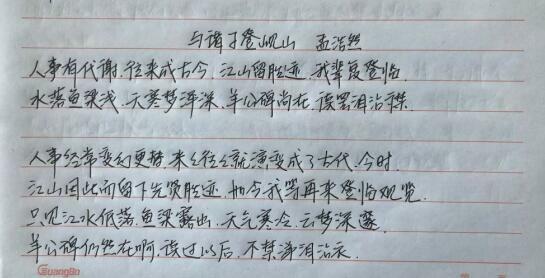 与诸子登岘山 孟浩然
人事有代谢,往来成古今,江山留胜迹,我辈复登临.
水落鱼梁浅,天寒梦泽深,羊公碑尚在,读罢泪沾襟.
人事经常变幻更替,来来往往就演变成了古代、今时.
江山因此而留下先贤胜迹,如今我等再来登临观览.
只见江水低落,鱼梁露出,天气寒冷,云梦深邃.
羊公碑仍然在啊,读过以后,不禁泽泪沾衣.
GuangBo